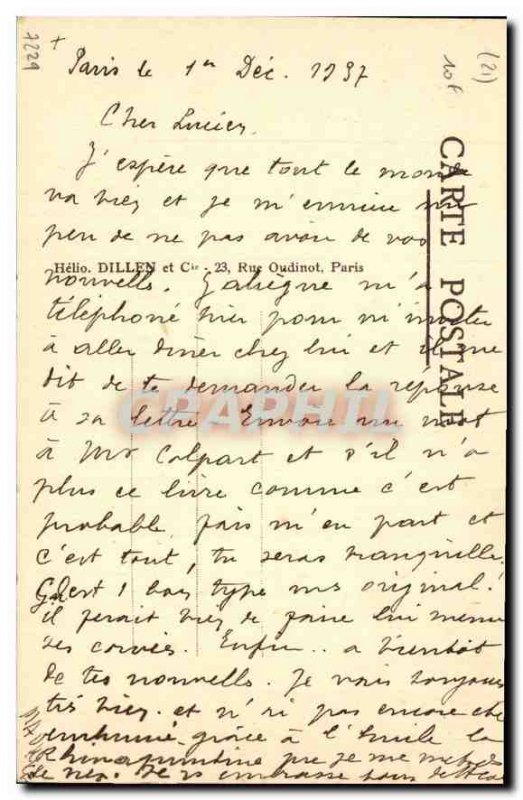 7229
+
(21)
10f
Paris le 1er Déc. 1937
Cher Lucien,
J'espère que tout le monde
va bien et je m'ennuie un
peu de ne pas avoir de vos
Hélio. DILLEN et Cie - 23, Rue Oudinot, Paris
nouvelles. m'a
téléphoné hier pour m'inviter
à aller dîner chez lui et il me
dit de te demander la réponse
à sa lettre Envoie un mot
à Mr Colpart et s'il n'a
plus ce livre comme c'est
probable, fais m'en part et
c'est tout, tu seras tranquille.
G. est 1 bon type mais original!
il ferait bien de faire lui même
ses corvées. Enfin.. à bientôt
de tes nouvelles. Je vais toujours
très bien et n'ai pas encore été
enrhumé grâce à l'huile
que je me mets
le nez. Je embrasse tous
CARTE POSTALE
CPAPHIL